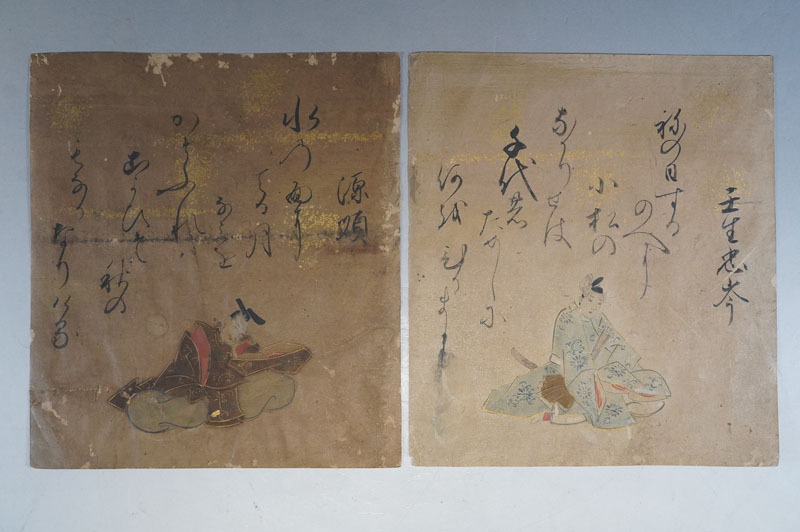 壬生忠岑
祢の日する
のへに
小松の
なかりせは
千代の
ためしに
何をひかまし
源順
水の面に
てる月
なみを
かそふれは
こよひそ秋の
もなかなりける